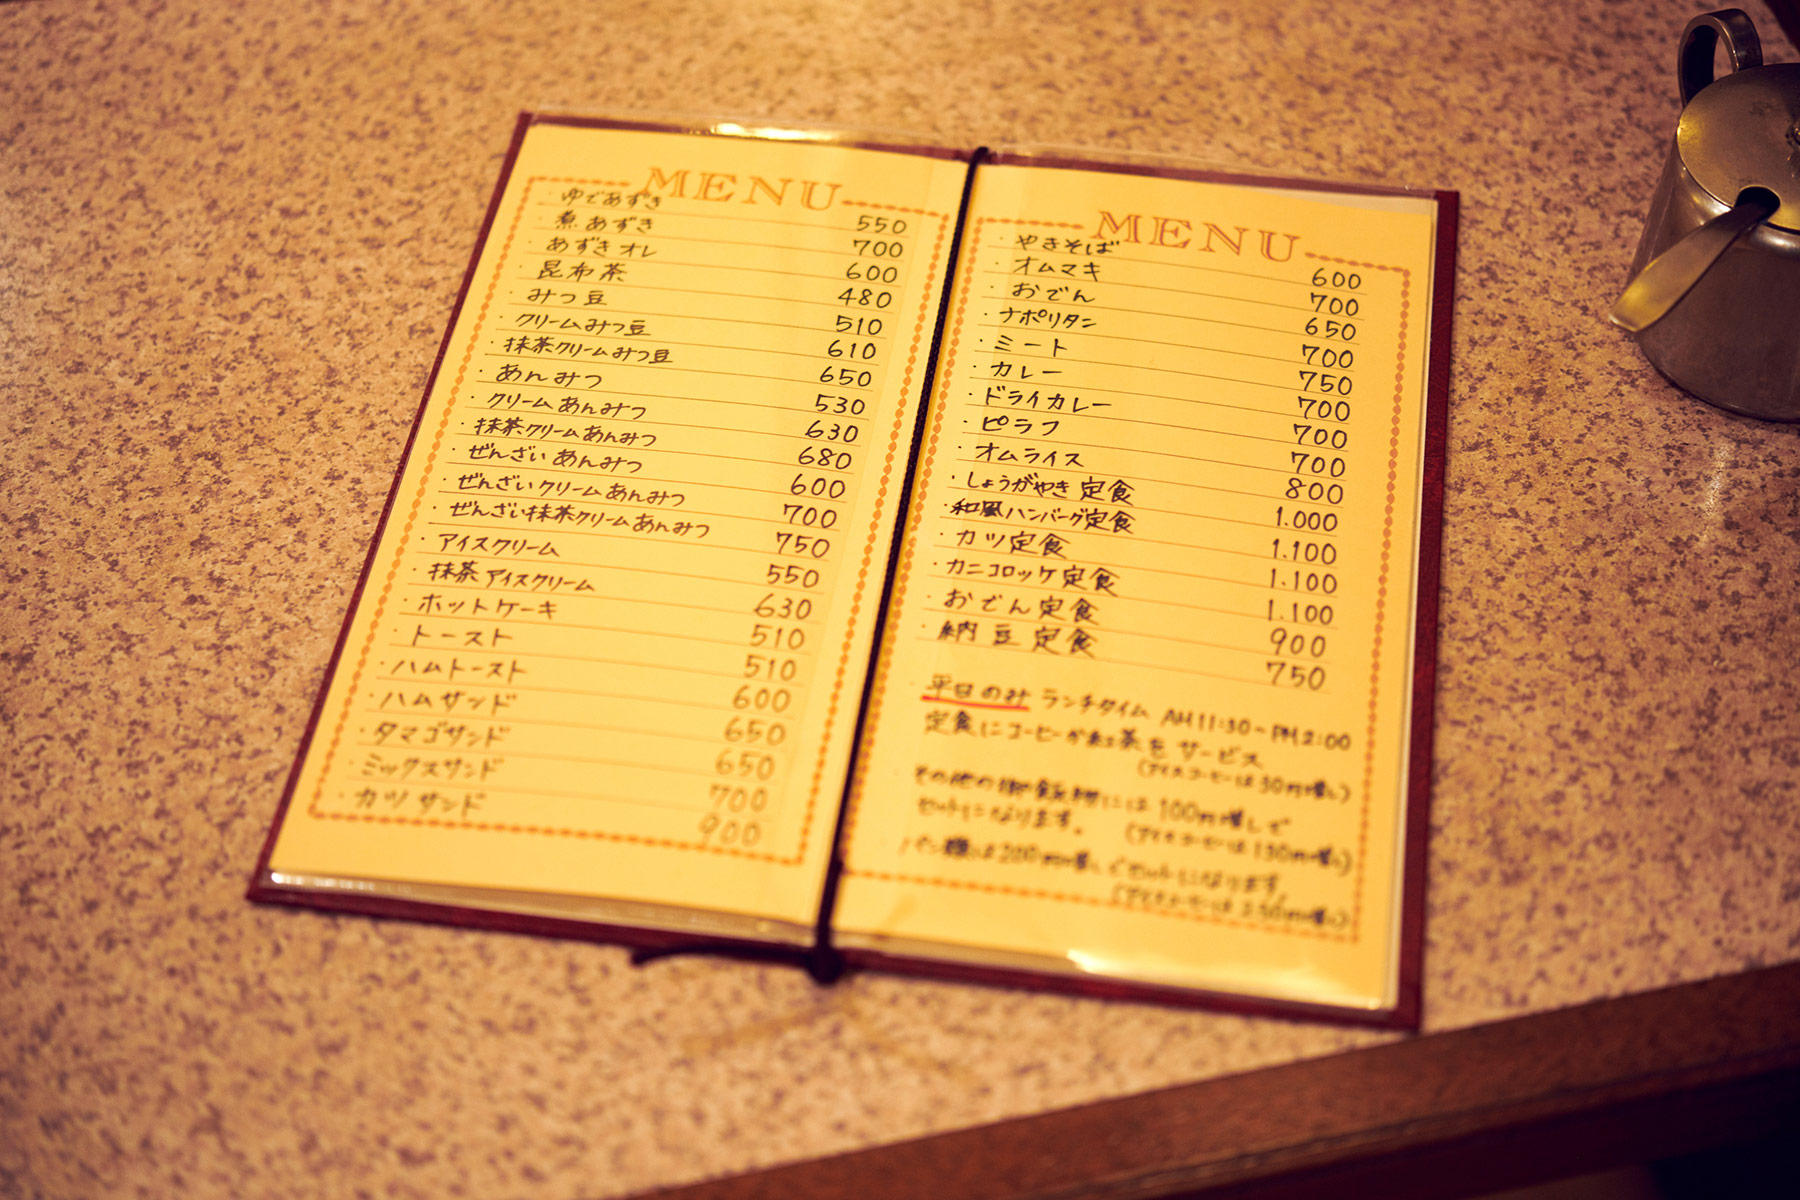 MENU
・ゆであずき 550
・煮あずき 700
・あずきオレ 600
・昆布茶 480
・みつ豆 510
・クリームみつ豆 610
・抹茶クリームみつ豆 650
・あんみつ 530
・クリームあんみつ 630
・抹茶クリームあんみつ 680
・ぜんざいあんみつ 600
・ぜんざいクリームあんみつ 700
・ぜんざい抹茶クリームあんみつ 750
・アイスクリーム 550
・抹茶アイスクリーム 630
・ホットケーキ 510
・トースト 510
・ハムトースト 600
・ハムサンド 650
・タマゴサンド 650
・ミックスサンド 700
・カツサンド 900
MENU
・やきそば 600
・オムマキ 700
・おでん 650
・ナポリタン 700
・ミート 750
・カレー 700
・ドライカレー 700
・ピラフ 700
・オムライス 800
・しょうがやき定食 1.000
・和風ハンバーグ定食 1.100
・カツ定食 1.100
・カニコロッケ定食 1.100
・おでん定食 900
・納豆定食 750
平日のみ ランチタイム AM11:30~PM2:00
定食にコーヒーか紅茶をサービス
(アイスコーヒーは30円増し)
その他の御飯物には100円増しで
セットになります。 (アイスコーヒーは130円増し)
パン類は200円増しでセットになります。
(アイスコーヒーは230円増し)